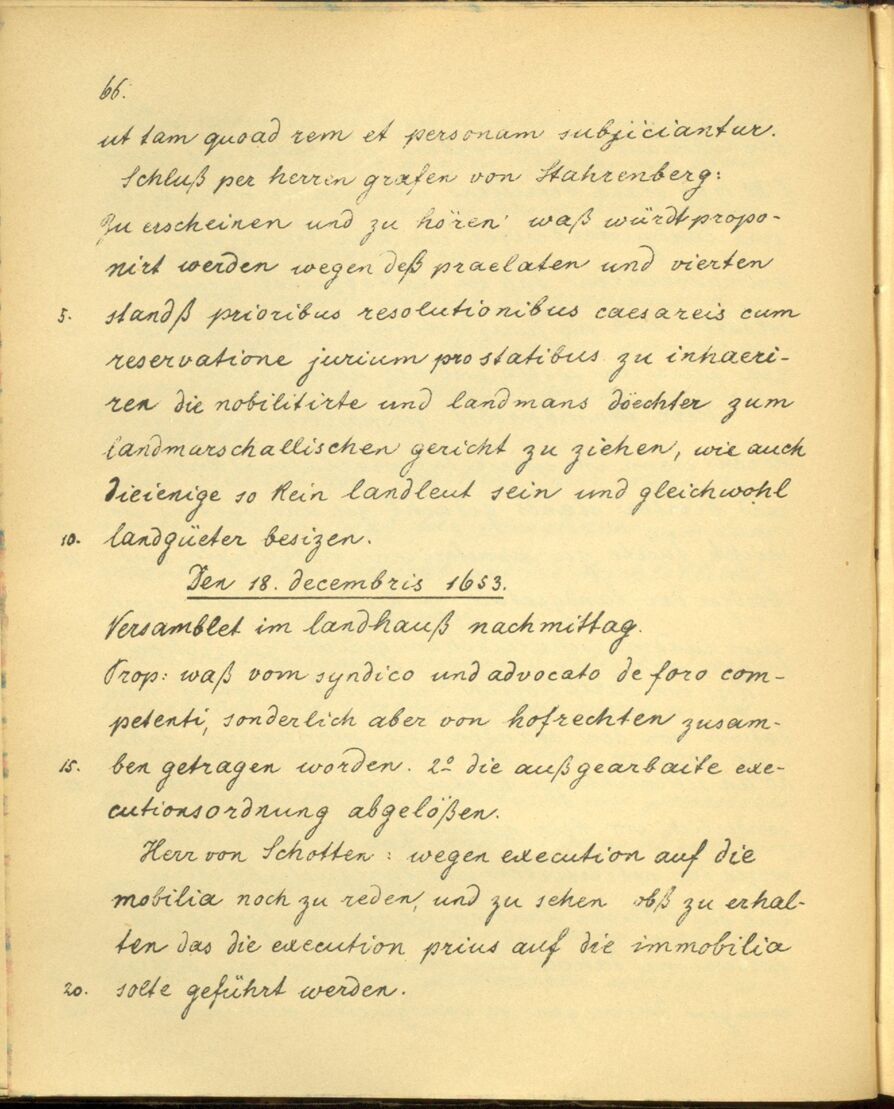 66.
ut tam quoad rem et personam subjiciantur.
Schluß per herren grafen von Stahrenberg:
Zu erscheinen und zu hören waß würdt propo-
nirt werden wegen deß praelaten und vierten
5. standß prioribus resolutionibus caesareis cum
reservatione jurium pro statibus zu inhaeri-
ren die nobilitirte und landmans döechter zum
landmarschallischen gericht zu ziehen, wie auch
dieienige so kein landleut sein und gleichwohl
10. landgüeter besizen.
Den 18. decembris 1653.
Versamblet im landhauß nachmittag.
Prop: waß vom syndico und advocato de foro com-
petenti, sonderlich aber von hofrechten zusam-
15. ben getragen worden. 2º die außgearbaite exe-
cutionsordnung abgelößen.
Herr von Schotten: wegen execution auf die
mobilia noch zu reden, und zu sehen obß zu erhal-
ten das die execution prius auf die immobilia
20. solte geführt werden.